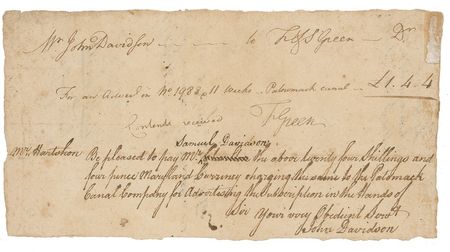 Mr John Davidson - - - - to F & S Green - Dr
For an Advert in No 1988 11 Weeks - Patowmack canal - £1.4.4
Contents received F Green
Samuel Davidson
Mr. Hartshorn Be pleased to pay Mr. the above twenty four Shillings and
four pence Maryland Currency charging the same to the Patomack
Canal Company for Advertising the Subscription in the Hands of
Sir Your very Obedient Servt
John Davidson